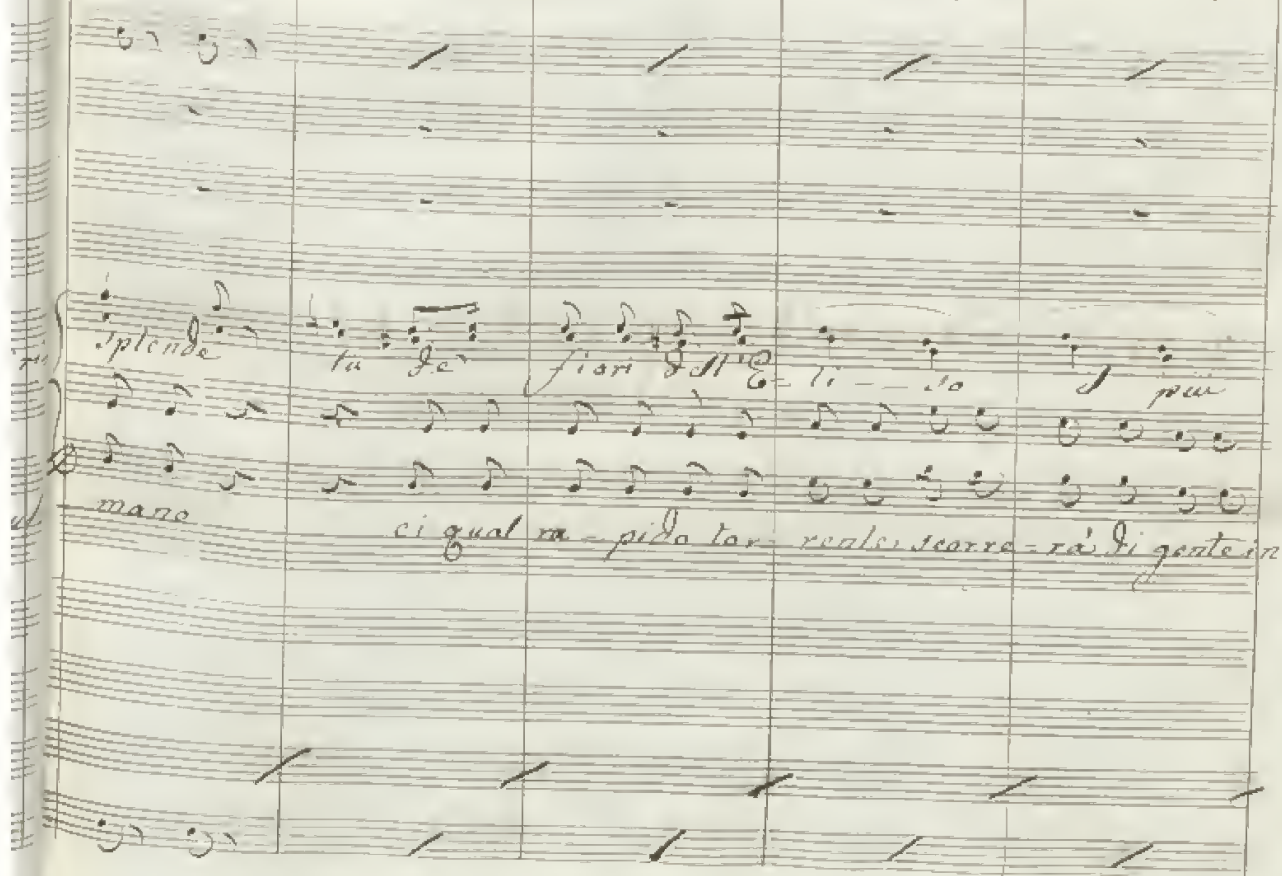 splende tu de' fiori dell'E - li - so I piu
mano ei qual ra - pido tor - rente scorre - rá di gente in